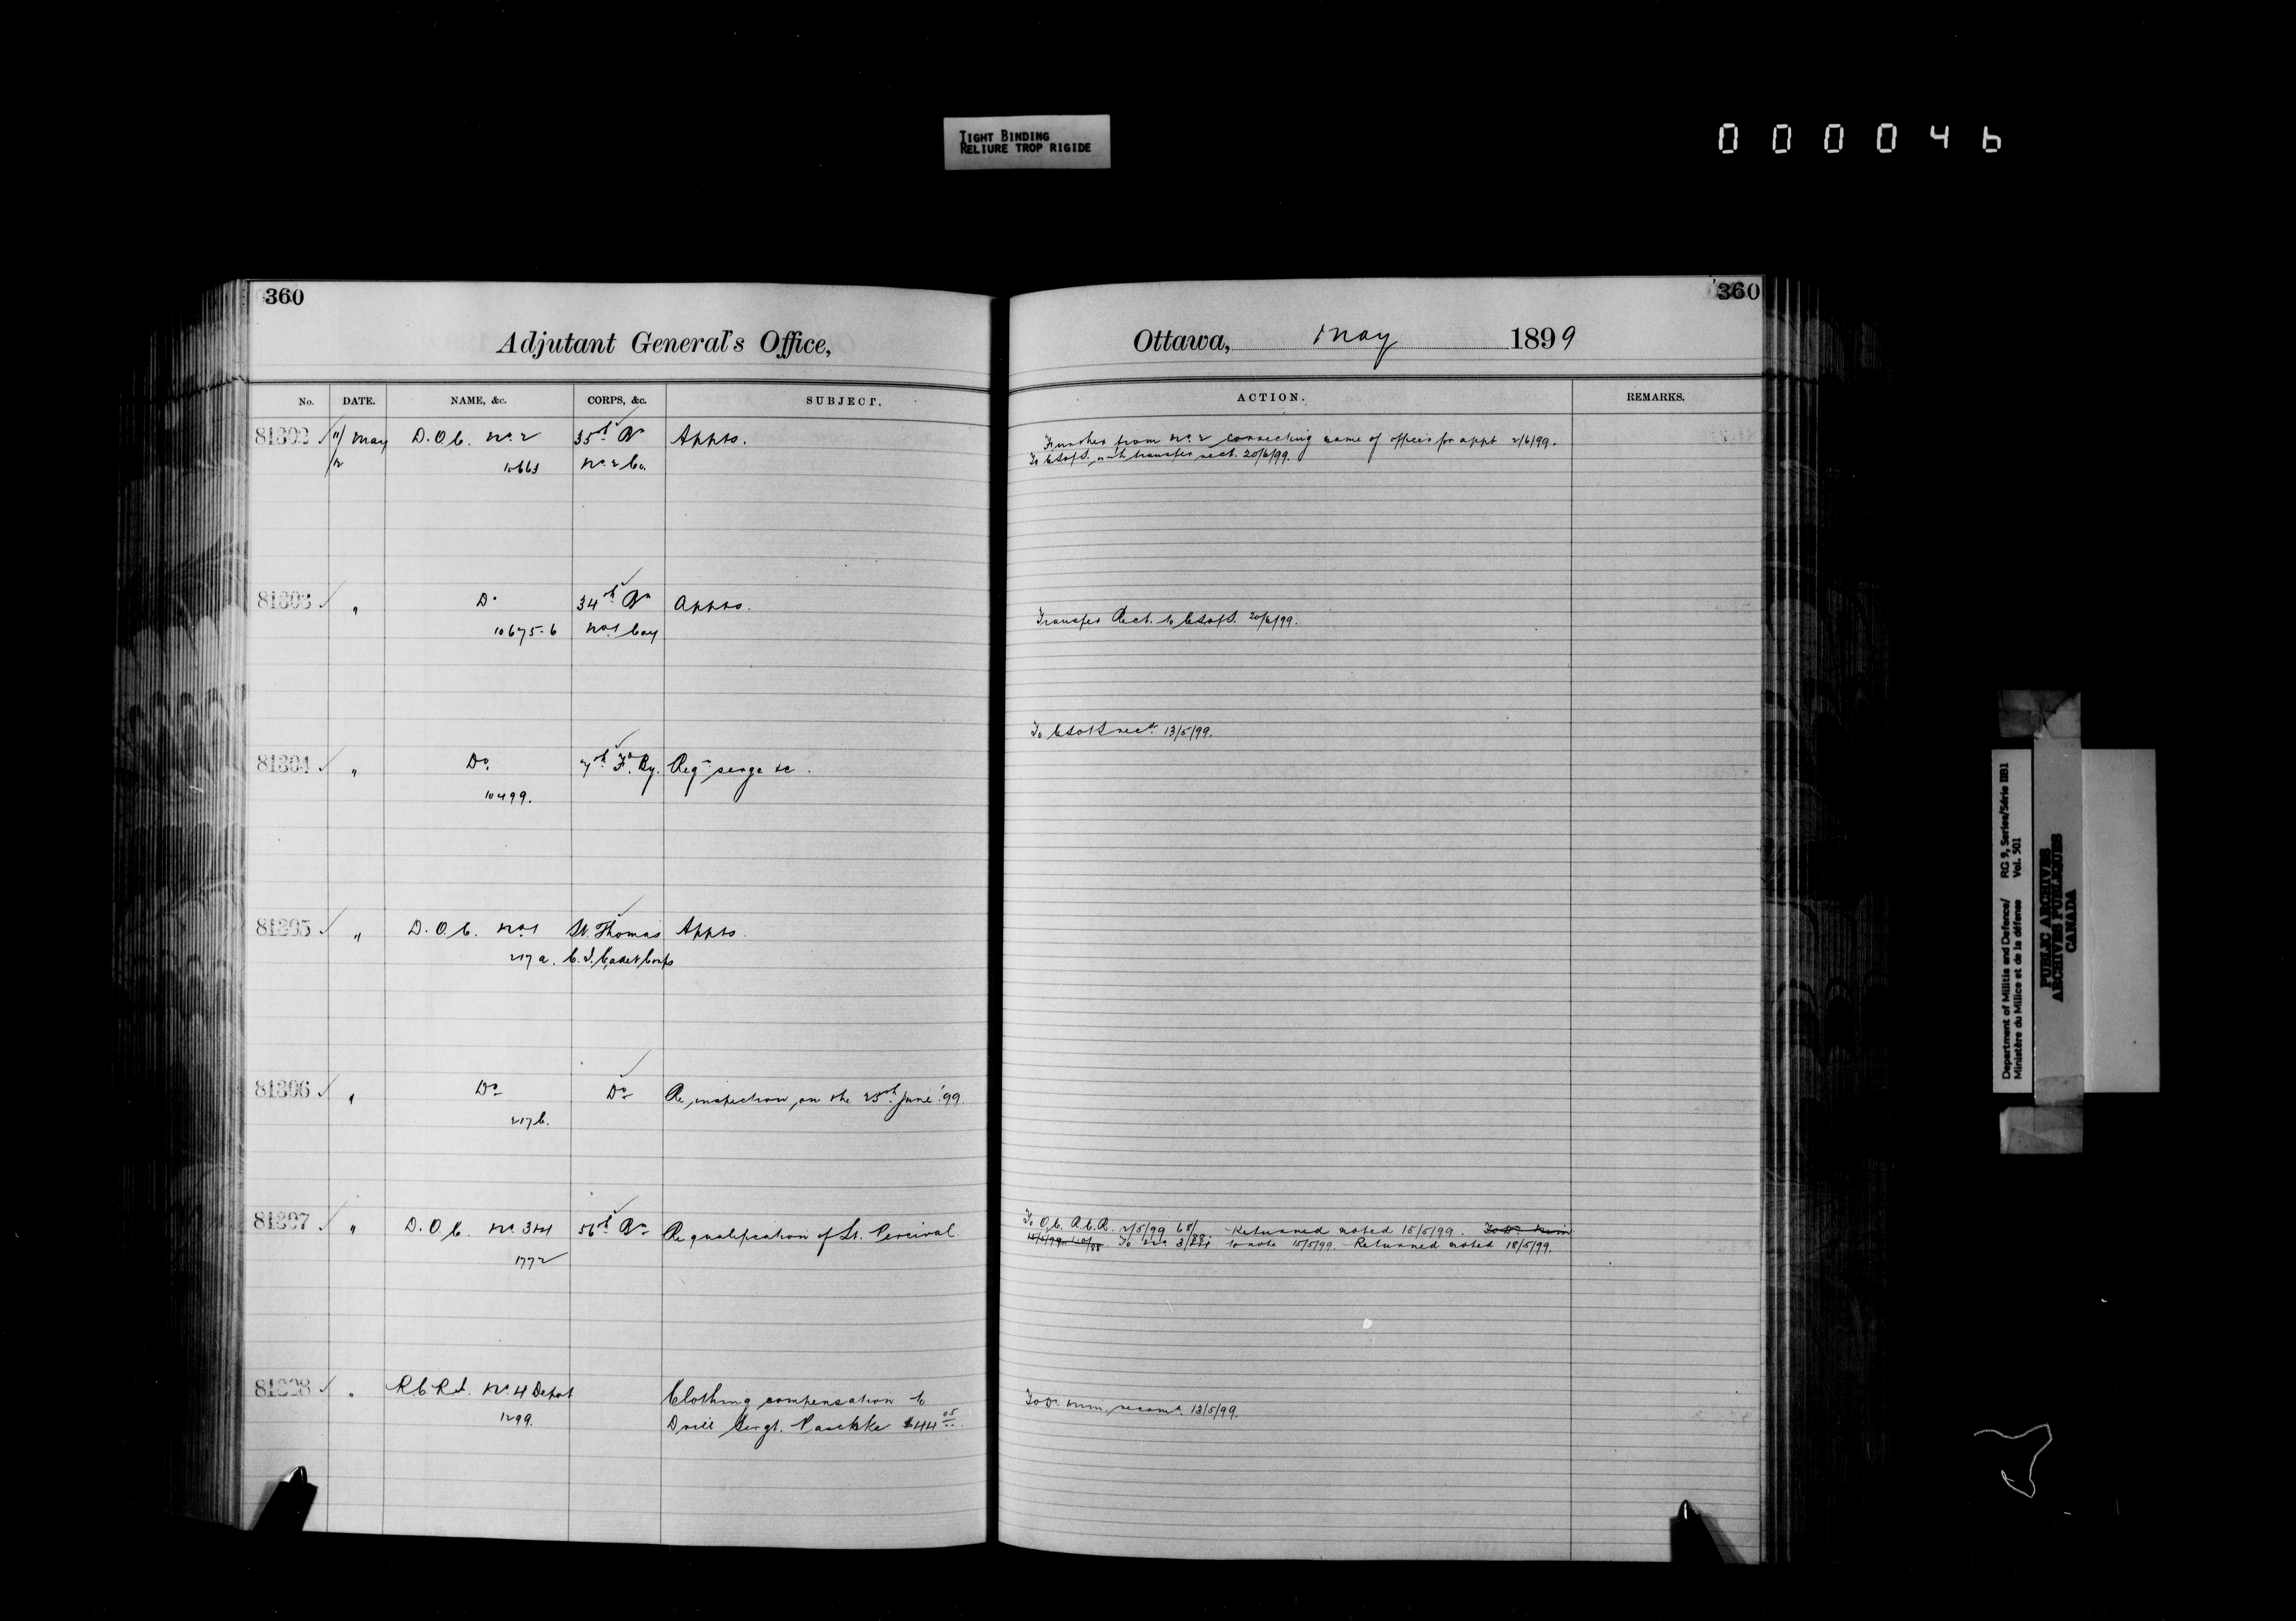 TIGHT BINDING
RELIURE TROP RIGIDE
000046
360
Adjutant General's Office,
No. DATE. NAME, &c. CORPS, &c. SUBJECT.
81302 11/ May D.O.C. No. 2 35th Bn Appts.
/12 10663 No. 2 Co.
81303 " Do 34th Bn Appts.
10675-6 No 1 Coy
81304 " Do. 7th Fd. By. Reqn serge &c.
10499.
81305 " D.O.C. No 1 St. Thomas Appts.
217a. C.I. Cadet Corps
81306 " Do Do Re inspection on the 25th June '99.
217b.
81307 " D.O.C. No. 3 & 4 56th Bn Re qualification of Lt. Percival
1772
81308 " R.C.R.I. No. 4 Depot Clothing compensation to
1299. Drill Sergt. Paschke $44.05
360
Ottawa, May 1899
ACTION. REMARKS.
Further from No. 2 correcting name of officer for appt 2/6/99.
To C.S. of S. with transfer rect. 20/6/99.
Transfer Rect. to C.S. of S. 20/6/99.
To C.S. of S. recd. 13/5/99.
To O.C. R.C.R. 12/5/99 Returned noted 15/5/99.
To No 3 & 4 to note 15/5/99. Returned noted 18/5/99.
To Dr. Min. recomd. 13/5/99.
Department of Militia and Defence/ RG 9, Series/Série IIB1
Ministère du Milice et de la défense Vol. 501
PUBLIC ARCHIVES
ARCHIVES PUBLIQUES
CANADA